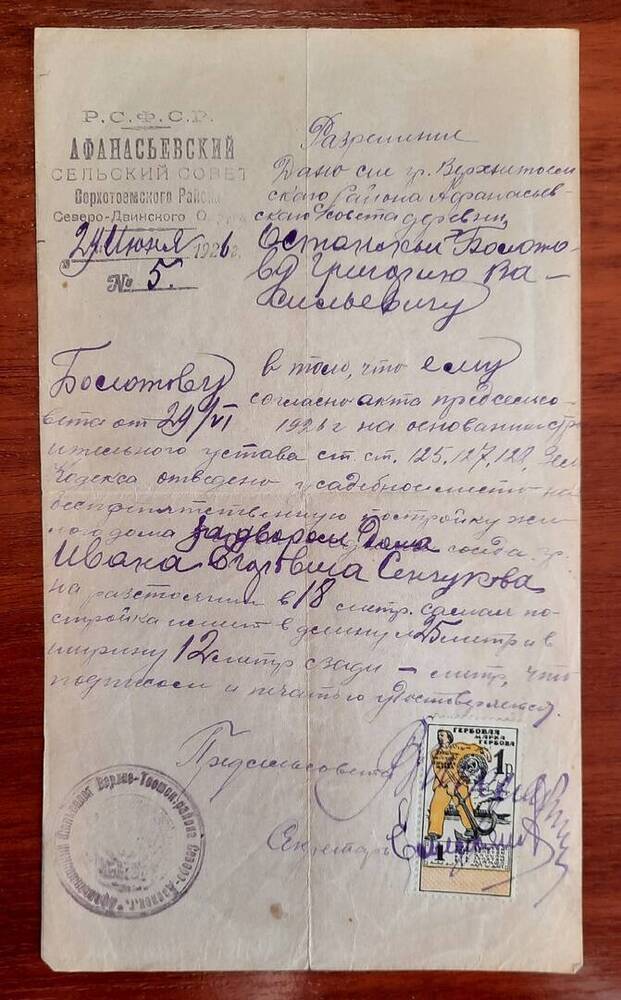 Р.С.Ф.С.Р.
АФАНАСЬЕВСКИЙ
СЕЛЬСКИЙ СОВЕТ
Верхотоемского Района
Северо-Двинского
"29" Июня 1926 г.
№ 5.
Разрешение
Дано сие гр. Верхнетоем
скаго Района Афанасьев
скаго совета деревни
Болото
ву Григорию Ва-
сильевичу
Болотову в том, что ему
согласно акта предсельсо
вета от 29/VI 1926 г на основании стро
ительного устава ст ст. 125, 127, 128, Зем
Кодекса отведено усадебное место на
беспрепятственную постройку жи
лого дома за двором Дома соседа гр.
Ивана Сенчукова
на разстоянии в 18 метр. самая по
стройка имеет в длину 25 метр и в
ширину 12 метр сзади – метр, что
подписом и печатью удостоверяется.
Предсельсовета
Секретарь
ГЕРБОВАЯ
МАРКА
ГЕРБОВА
1 р
1